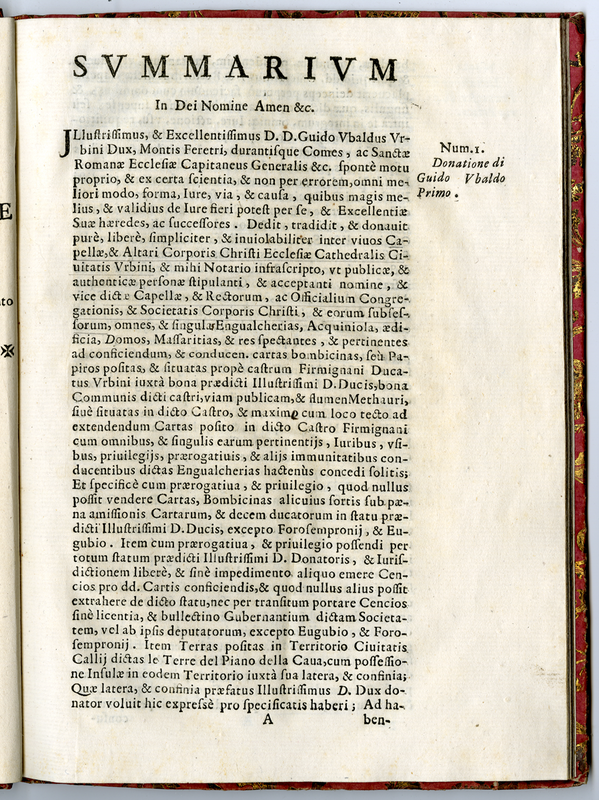 SVMMARIVM
In Dei Nomine Amen &c.
ILlustrissimus, & Excellentissimus D. D. Guido Vbaldus Vr-
bini Dux, Montis Feretri, durantisque Comes, ac Sanctæ
Romanæ Ecclesiæ Capitaneus Generalis &c. spontè motu
proprio, & ex certa scientia, & non per errorem, omni me-
liori modo, forma, Iure, via, & causa, quibus magis me-
lius, & validius de Iure fieri potest per se, & Excellentiæ
Suæ hæredes, ac successores. Dedit, tradidit, & donauit
purè, liberè, simpliciter, & inuiolabiliter inter viuos Ca-
pellæ, & Altari Corporis Christi Ecclesiæ Cathedralis Ci-
uitatis Vrbini, & mihi Notario infrascripto, vt publicæ, &
authenticæ personæ stipulanti, & acceptanti nomine, &
vice dictæ Capellæ, & Rectorum, ac Officialium Congre-
gationis, & Societatis Corporis Christi, & eorum subses-
sorum, omnes, & singulas Engualcherias, Acquiniola, ædi-
ficia, Domos, Massaritias, & res spectantes, & pertinentes
ad conficiendum, & conducen. cartas bombicinas, seù Pa-
piros positas, & situatas propè castrum Firmignani Duca-
tus Vrbini iuxtà bona prædicti Illustrissimi D. Ducis, bona
Communis dicti castri, viam publicam, & flumen Methauri,
siuè situatas in dicto Castro, & maximè cum loco tecto ad
extendendum Cartas posito in dicto Castro Firmignani
cum omnibus, & singulis earum pertinentijs, Iuribus, vsi-
bus, priuilegijs, prærogatiuis, & alijs immunitatibus con-
ducentibus dictas Engualcherias hactenùs concedi solitis;
Et specificè cum prærogatiua, & priuilegio, quod nullus
possit vendere Cartas, Bombicinas alicuius sortis sub pæ-
na amissionis Cartarum, & decem ducatorum in statu præ-
dicti Illustrissimi D. Ducis, excepto Forosempronij, & Eu-
gubio. Item cum prærogatiua, & priuilegio possendi per
totum statum prædicti Illustrissimi D. Donatoris, & Iuris-
dictionem liberè, & sinè impedimento aliquo emere Cen-
cios pro dd. Cartis conficiendis, & quod nullus alius possit
extrahere de dicto statu, nec per transitum portare Cencios
sinè licentia, & bullectino Gubernantium dictam Societa-
tem, vel ab ipsis deputatorum, excepto Eugubio, & Foro-
sempronij. Item Terras positas in Territorio Ciuitatis
Callij dictas le Terre del Piano della Caua, cum possessio-
ne Insulæ in eodem Territorio iuxtà sua latera, & confinia;
Quæ latera, & confinia præfatus Illustrissimus D. Dux do-
nator voluit hic expressè pro specificatis haberi; Ad ha-
A
ben-
Num. 1.
Donatione di
Guido Vbaldo
Primo.
E
to